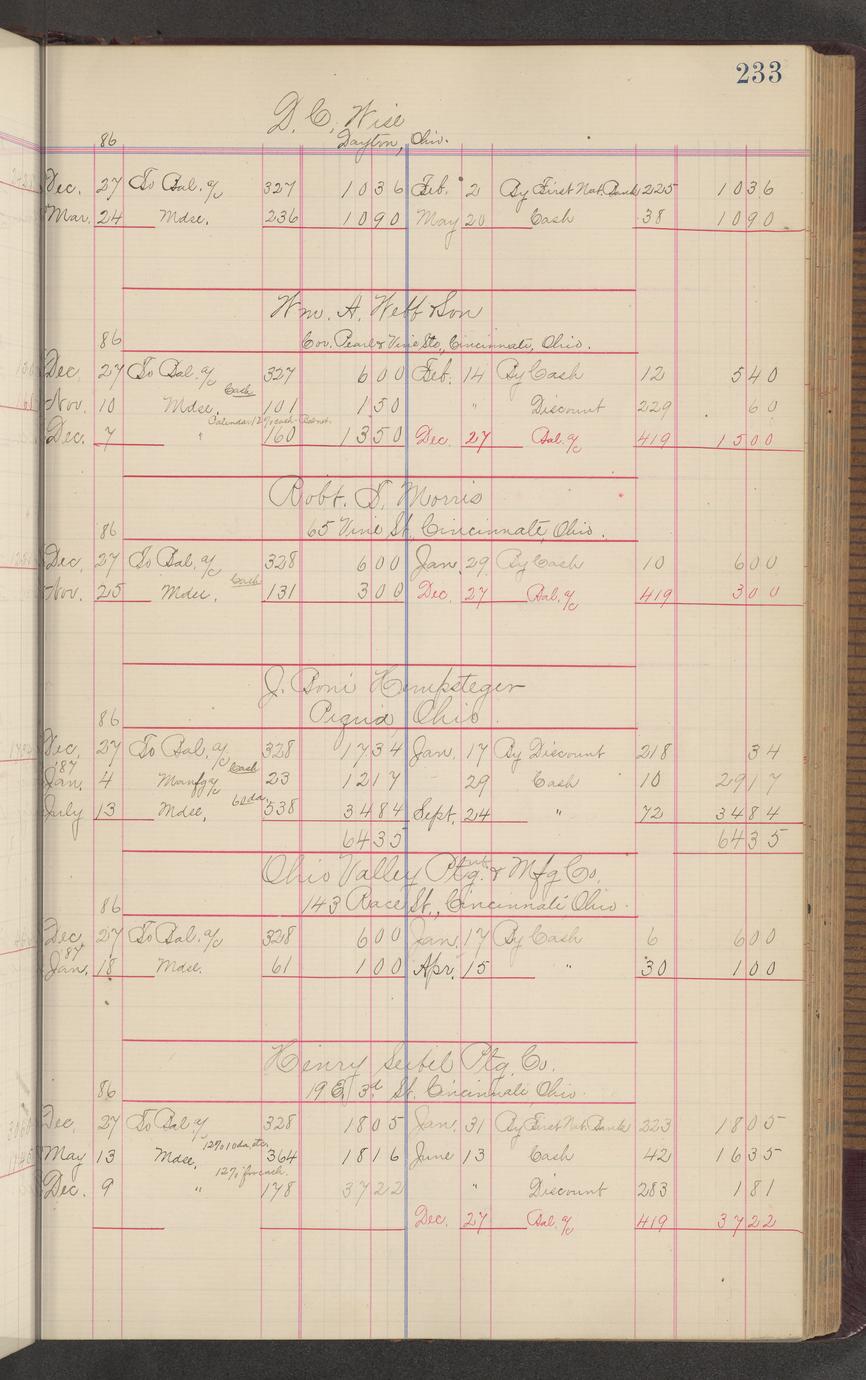 233
D. C. Wise
86 Dayton, Ohio.
Dec. 27 To Bal. a/c 327 1036 Feb. 2 By First Nat. Bank 225 1036
Mar. 24 Mdse. 236 1090 May 20 Cash 38 1090
Wm. A. Webb & Son
86 Cor. Pearl & Vine Sts., Cincinnati, Ohio.
Dec. 27 To Bal. a/c 327 600 Feb. 14 By Cash 12 540
Nov. 10 Mdse. Cash 101 150 " Discount 229 60
Dec. 7 " 160 1350 Dec. 27 Bal. a/c 419 1500
Robt. S. Morris
86 65 Vine St. Cincinnati, Ohio.
Dec. 27 To Bal. a/c 328 600 Jan. 29 By Cash 10 600
Nov. 25 Mdse. Cash 131 300 Dec. 27 Bal. a/c 419 300
J. Boni Hempsteger
86 Piqua, Ohio.
Dec. 27 To Bal. a/c 328 1734 Jan. 17 By Discount 218 34
'87
Jan. 4 Manfg a/c Cash 23 1217 29 Cash 10 2917
July 13 Mdse. 60 da. 538 3484 Sept. 24 " 72 3484
6435 6435
Ohio Valley Ptg. & Mfg Co.
86 143 Race St., Cincinnati Ohio.
Dec. 27 To Bal. a/c 328 600 Jan. 17 By Cash 6 600
'87
Jan. 18 Mdse. 61 100 Apr. 15 " 30 100
Henry Seibel Ptg. Co.
86 19 E. 3d St. Cincinnati, Ohio.
Dec. 27 To Bal a/c 328 1805 Jan. 31 By First Nat. Bank 223 1805
May 13 Mdse. 12% 10 da. etc. 364 1816 June 13 Cash 42 1635
Dec. 9 " 12% for cash. 178 3722 " Discount 283 181
Dec. 27 Bal. a/c 419 3722